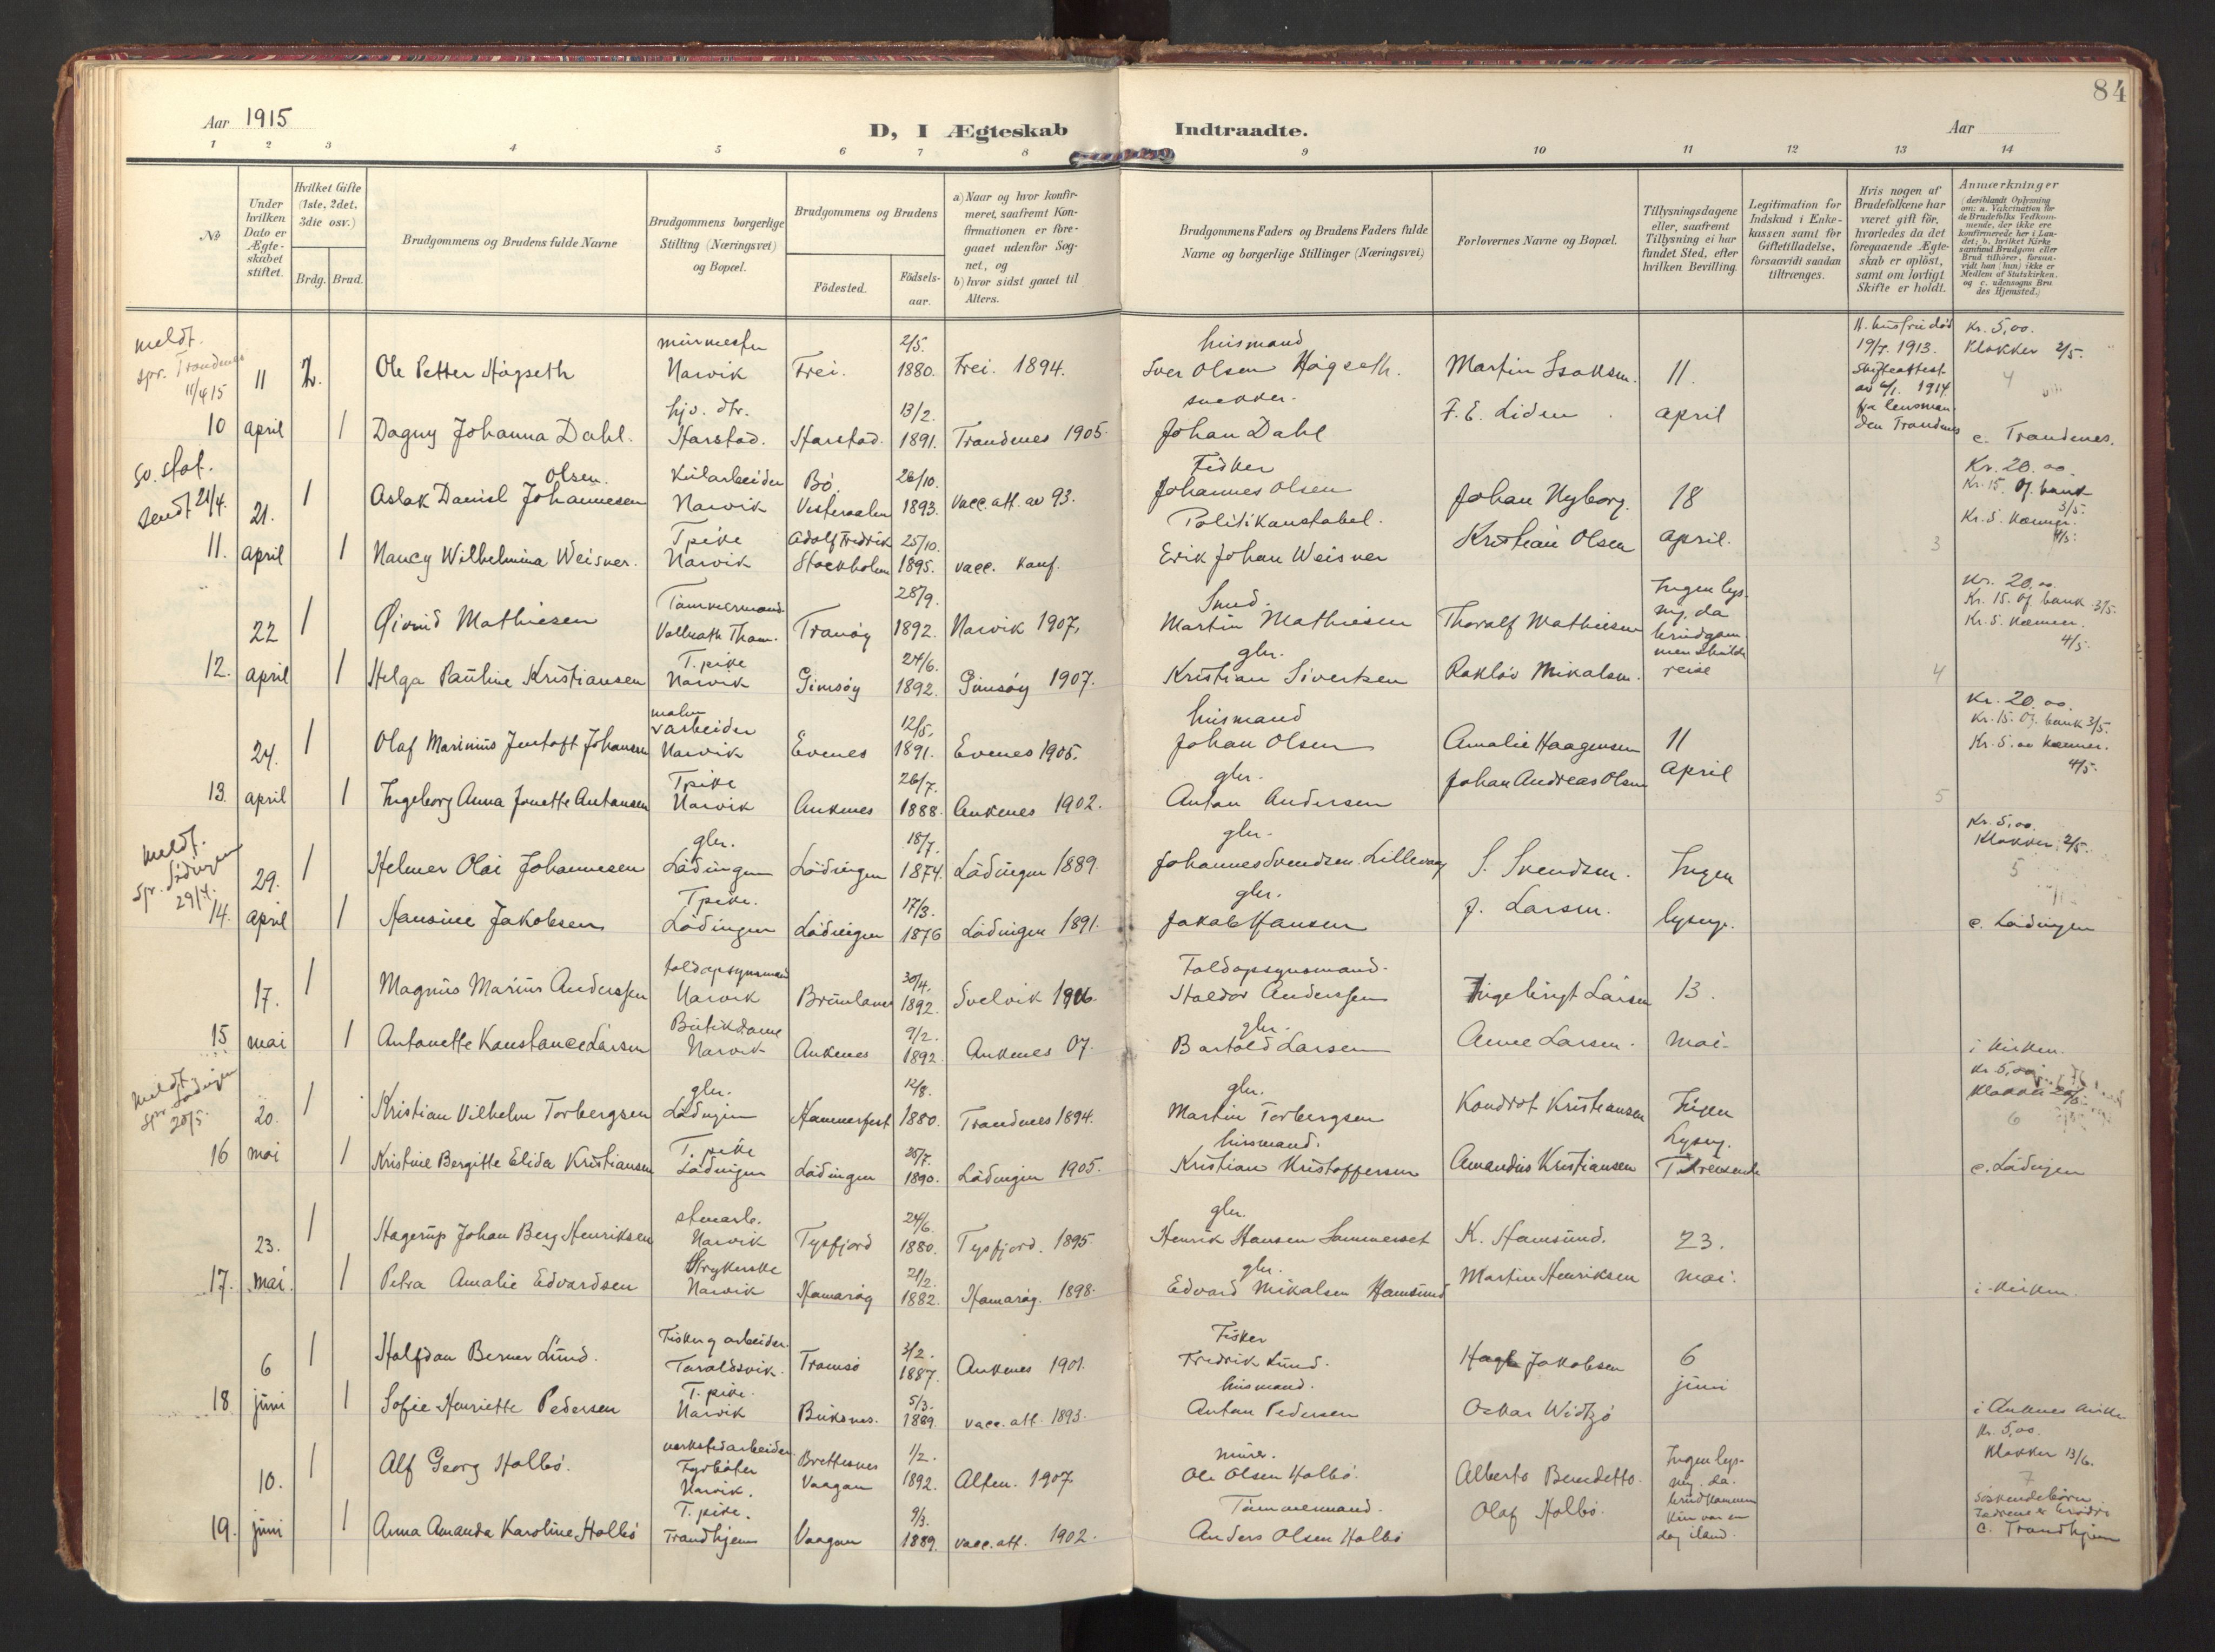 84
Aar 1915
D, I Ægteskab Indtraadte.
Aar
1 2 3 4 5 6 7 8 9 10 11 12 13 14
№
Under hvilken Dato er Ægte-skabet stiftet.
Hvilket Gifte (1ste, 2det, 3die osv.)
Brdg. Brud.
Brudgommens og Brudens fulde Navne
Brudgommens borgerlige Stilling (Næringsvei) og Bopæl.
Brudgommens og Brudens
Födested.
Födsels-aar.
a) Naar og hvor konfir-meret, saafremt Kon-firmationen er fore-gaaet udenfor Sog-net, og
b) hvor sidst gaaet til Alters.
Brudgommens Faders og Brudens Faders fulde Navne og borgerlige Stillinger (Næringsvei)
Forlovernes Navne og Bopæl.
Tillysningsdagene eller, saafremt Tillysning ei har fundet Sted, efter hvilken Bevilling.
Legitimation for Indskud i Enke-kassen samt for Giftetilladelse, forsaavidt saadan tiltrænges.
Hvis nogen af Brudefolkene har været gift för, hvorledes da det foregaaende Ægte-skab er oplöst, samt om lovligt Skifte er holdt.
Anmærkninger
(deriblandt Oplysning om: a. Vakcination for de Brudefolks Vedkom-mende, der ikke ere konfirmerede her i Lan-det; b. hvilket Kirke samfund Brudgom eller Brud tilhörer, forsaa-vidt han (hun) ikke er Medlem af Statskirken. og c. udensogns Bru des Hjemsted.)
meldt. spr. Trandenes 11/4 15
10 11 april 2.
Ole Petter Hågseth
Narvik Frei. 2/5. 1880. Frei. 1894.
husmand
Iver Olsen Hågseth.
Martin Isaksen. 11.
19/7. 1913. Skifteattest av 6/1. 1914 fra lensmanden Trandenes
Kr. 5,00. Klokker 2/5. 4
1 Dagny Johanna Dahl.
Harstad. Harstad. 13/2. 1891. Trandenes 1905.
snekker.
Johan Dahl
F. E. Liden april
c. Trandenes.
sv. stat. sendt 21/4.
11. 21. april 1
Olsen.
Aslak Daniel Johannesen
Kularbeider Narvik Bö Vesteraalen 26/10. 1893. Vacc. att. av 93.
Fisker
Johannes Olsen
Johan Nyborg. 18
Kr. 20.00. Kr. 15. Of. bank 3/5. Kr. 5. Kæmner. 4/5.
1 Nancy Wilhelmina Weisner.
Tpike Narvik Adolf Fredrik Stockholm 25/10. 1895. vacc. konf.
Politikonstabel.
Erik Johan Weisner
Kristian Olsen april.
3
12. 22 april 1
Öivind Mathiesen
Tömmermand Tranöy 28/9. 1892. Narvik 1907.
Smed.
Martin Mathiesen
Thoralf Mathiesen
Ingen lysning, da brudgommen skulde reise
Kr. 20,00. Kr. 15. Of. bank 3/5. Kr. 5. Kæmner. 4/5.
1 Helga Pauline Kristiansen
T. pike Narvik Gimsöy 24/6. 1892. Gimsöy 1907.
gbr.
Kristian Sivertsen
Mikalsen.
4
13. 24. april 1
Olaf Marinius Jentoft Johansen
malmarbeider Narvik Evenes 12/5. 1891. Evenes 1905.
husmand
Johan Olsen
Amalie Haagensen 11
Kr. 20.00. Kr. 15. Of. bank 3/5. Kr. 5.00 Kæmner. 4/5.
1 Ingeborg Anna Jonette Antonsen
Tpike Narvik Ankenes 26/7. 1888. Ankenes 1902.
gbr.
Anton Andersen
Johan Andreas Olsen april
5
meldt. spr. Lödingen 29/4.
14. 29. april 1
Helmer Olai Johannesen
gbr. Lödingen Lödingen 18/7. 1874. Lödingen 1889.
gbr.
Johannes Svendsen Lillevaag
S. Svendsen. Ingen
Kr. 5,00. Klokker 2/5. 5
1 Hansine Jakobsen
Tpike. Lödingen Lödingen 17/3. 1876 Lödingen 1891.
gbr.
Jakob Hansen
J. Larsen. lysng.
c. Lödingen
15 17. mai 1
Magnus Marius Anderssen
toldopsynsmand Narvik Brunlanes 30/4. 1892. Svelvik 1906.
Toldopsynsmand.
Haldor Anderssen
Ingebrigt Larsen 13.
1 Antonette Konstance Larsen
Butikdame Narvik Ankenes 9/2. 1892 Ankenes 07.
gbr.
Bartold Larsen
Anne Larsen. mai.
i kirken.
meldt. spr. Lödingen 20/5.
16 20. mai 1
Kristian Vilhelm Torbergsen
gbr. Lödingen Hammerfest 12/8. 1880. Trandenes 1894.
gbr.
Martin Torbergsen
Kondrat Kristiansen Ingen
Kr. 5,00 Klokker 6
1 Kristine Bergitte Elida Kristiansen
T. pike Lödingen Lödingen 25/7. 1890. Lödingen 1905.
husmand.
Kristian Kristoffersen
Amandus Kristiansen Lysng.
c. Lödingen
17. 23. mai. 1
Hagerup Johan Berg Henriksen
Narvik Tysfjord 24/6 1880. Tysfjord. 1895
gbr.
Henrik Hansen Sommerset
K. Hamsund. 23.
1 Petra Amalie Edvardsen
Strykerske Narvik Hamaröy 21/2. 1882. Hamaröy. 1898.
gbr.
Edvard Mikalsen Hamsund
Martin Henriksen mai.
i kirken.
18 6 juni 1
Halfdan Berner Lund.
Fisker og arbeider. Taraldsvik. Tromsö 3/2. 1887. Ankenes 1901.
Fisker
Fredrik Lund.
Jakobsen 6
1 Sofie Henriette Pedersen
T. pike. Narvik Buksnes. 5/3. 1889. vacc. att. 1893.
husmand.
Anton Pedersen
Oskar juni
i Ankenes kirke
19. 10. juni 1
Alf Georg Holbö.
verkstedarbeider. Fyrböter Narvik. Brettesnes Vaagan 1/2. 1892. Alten. 1907.
murer.
Ole Olsen Holbö.
Alberto Benedetto.
Ingen lysning. da brudkommen kun var en dag iland
Kr. 5,00. Klokker 13/6. 7
1 Anna Amanda Karoline Holbö
T. pike. Trondhjem Vaagan 9/3. 1889. vacc. att. 1902.
Tömmermand.
Anders Olsen Holbö
Olaf Holbö.
Söskendebörn c. Trondhjem